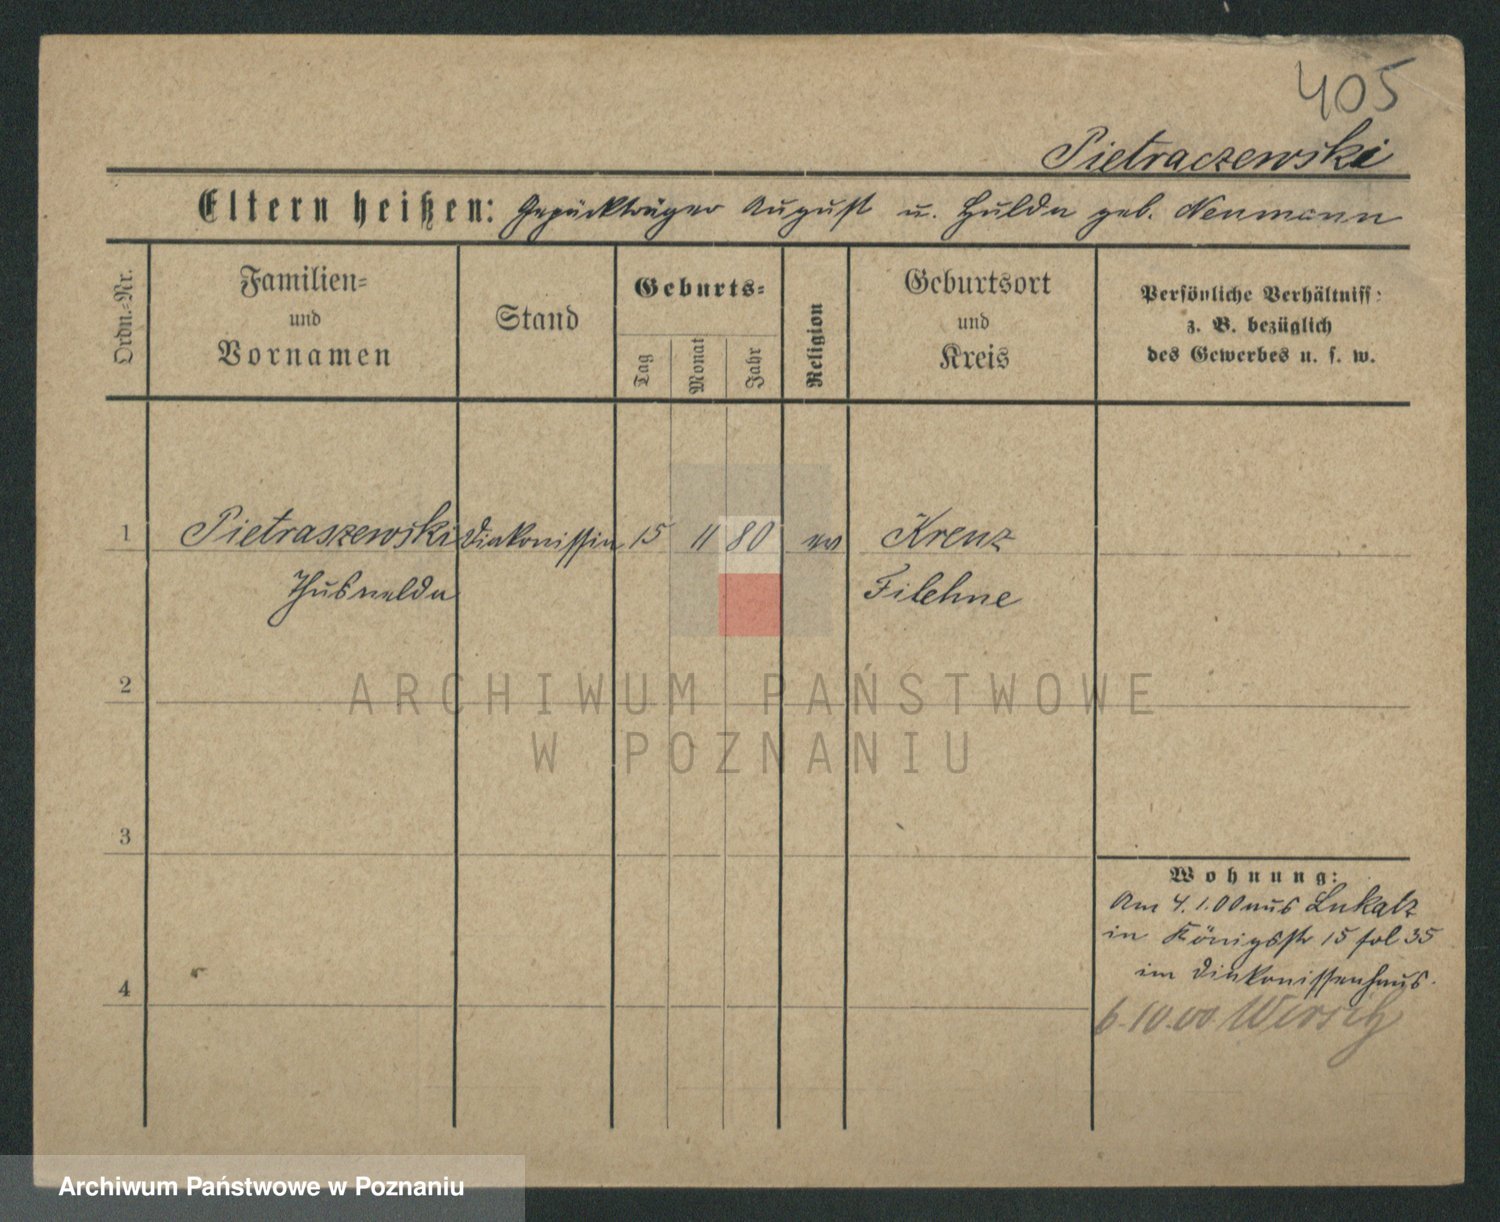 405
Pietraczewski
Eltern heißen: Gepäckträger August u. Hulda geb. Neumann
Ordn.-Nr.
Familien-
und
Vornamen
Stand
Geburts-
Tag
Monat
Jahr
Religion
Geburtsort
und
Kreis
Persönliche Verhältniss:
z. B. bezüglich
des Gewerbes u. s. w.
1 Pietraszewski Diakonissin 15 11 80 ev Kreuz
Thusnelda Filehne
2
3
4
Wohnung:
Am 4.1.00 aus Lukatz
in Königsstr 15 fol 35
im Diakonissenhaus.
6.10.00 Wirsitz
ARCHIWUM PAŃSTWOWE
W POZNANIU
Archiwum Państwowe w Poznaniu